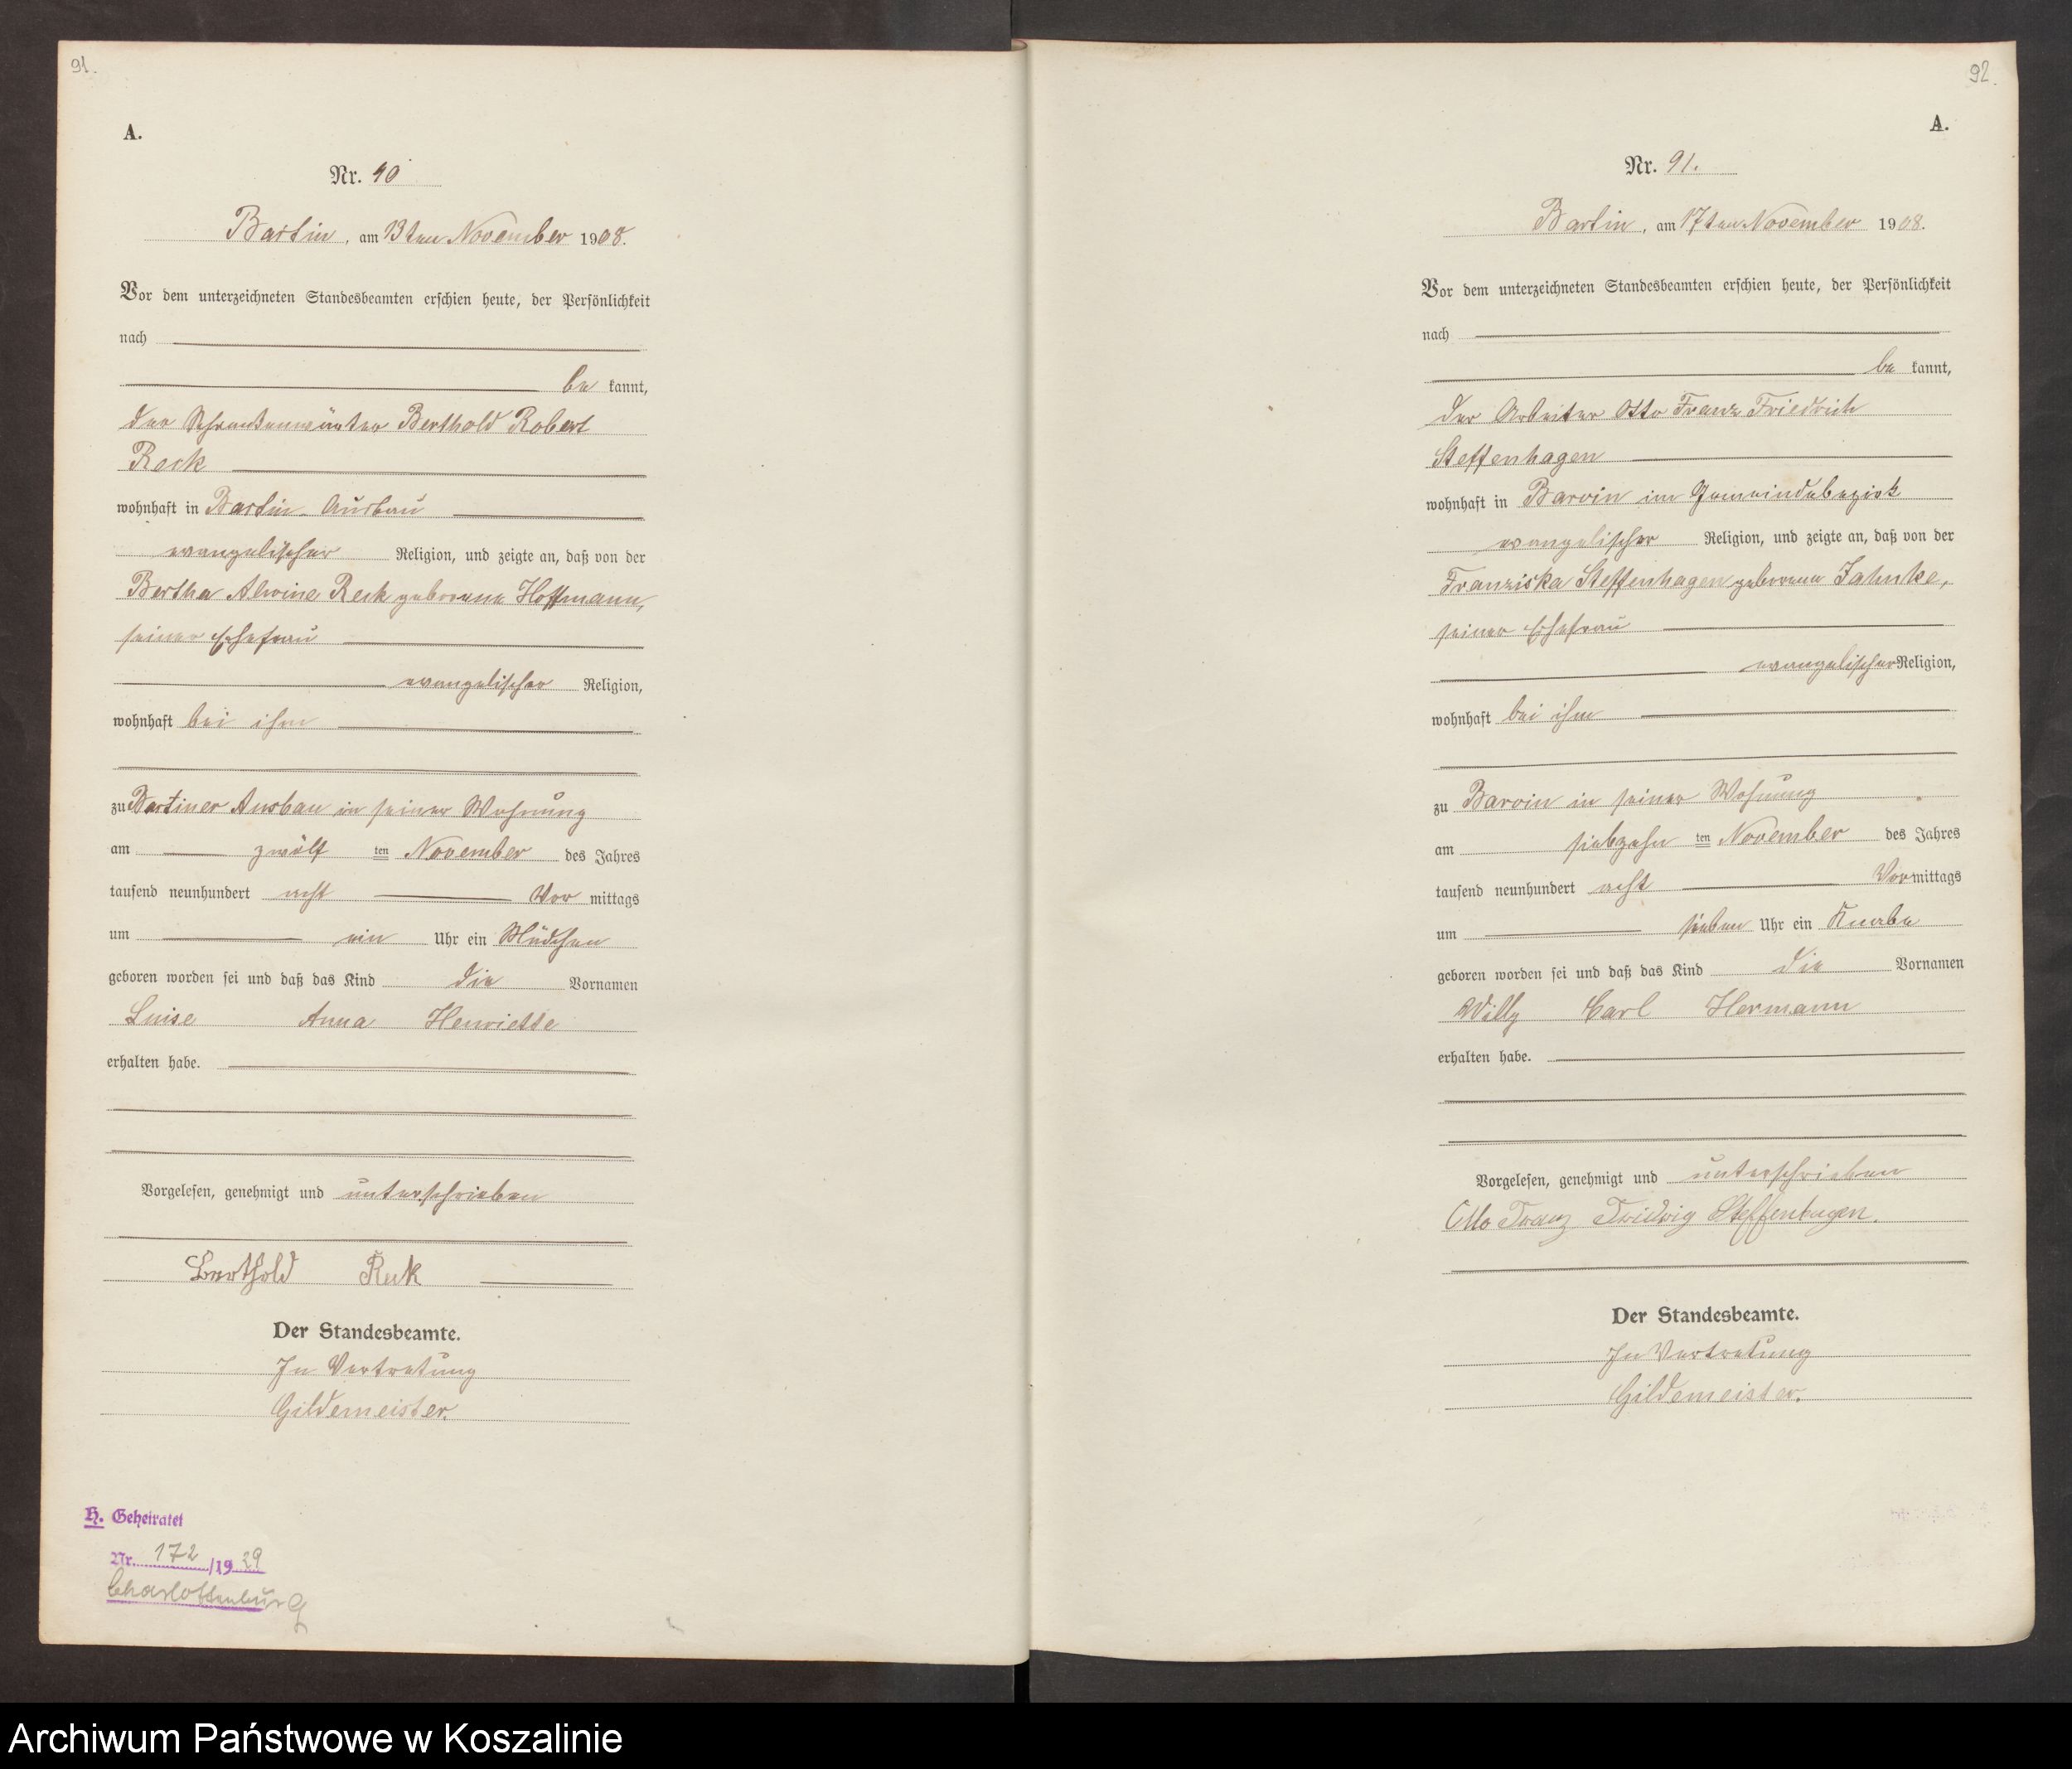 91.
A.
Nr. 90
Bartin, am 13ten November 1908.
Vor dem unterzeichneten Standesbeamten erschien heute, der Persönlichkeit
nach
be kannt,
der Schrankenwärter Berthold Robert
Reck
wohnhaft in Bartin-Ausbau
evangelischer Religion, und zeigte an, daß von der
Bertha Alwine Reck geborene Hoffmann,
seiner Ehefrau
evangelischer Religion,
wohnhaft bei ihm
zu Bartiner Ausbau in seiner Wohnung
am zwölf ten November des Jahres
tausend neunhundert acht Vor mittags
um ein Uhr ein Mädchen
geboren worden sei und daß das Kind die Vornamen
Luise Anna Henriette
erhalten habe.
Vorgelesen, genehmigt und unterschrieben
Berthold Reck
Der Standesbeamte.
In Vertretung
Gildemeister.
H. Geheiratet
Nr. 172/1929
Charlottenburg
92.
A.
Nr. 91.
Bartin, am 17ten November 1908.
Vor dem unterzeichneten Standesbeamten erschien heute, der Persönlichkeit
nach
be kannt,
der Arbeiter Otto Franz Friedrich
Steffenhagen
wohnhaft in Barvin im Gemeindebezirk
evangelischer Religion, und zeigte an, daß von der
Franziska Steffenhagen geborene Jahnke,
seiner Ehefrau
evangelischer Religion,
wohnhaft bei ihm
zu Barvin in seiner Wohnung
am siebzehn ten November des Jahres
tausend neunhundert acht Vormittags
um sieben Uhr ein Knabe
geboren worden sei und daß das Kind die Vornamen
Willy Carl Hermann
erhalten habe.
Vorgelesen, genehmigt und unterschrieben
Otto Franz Steffenhagen.
Der Standesbeamte.
In Vertretung
Gildemeister.
Archiwum Państwowe w Koszalinie